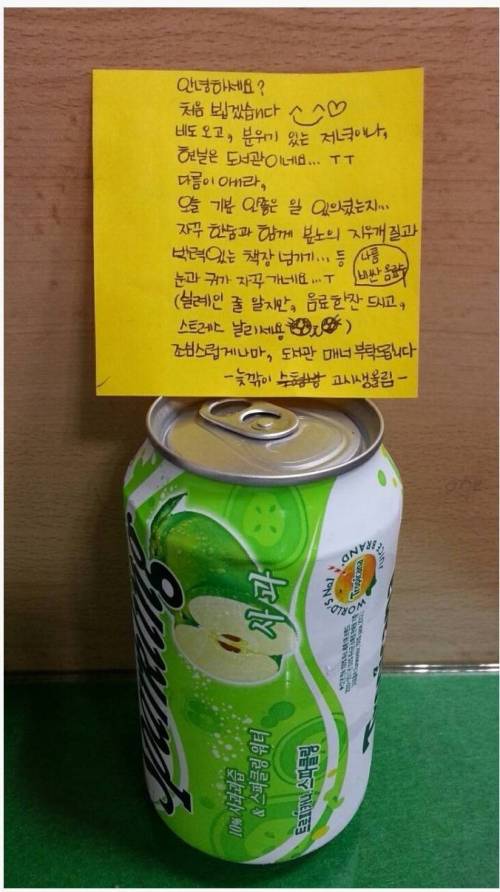 안녕하세요?
처음 뵙겠습니다 ^_^♡
비도 오고, 분위기 있는 저녁이나,
현실은 도서관이네요... ㅜㅜ
다름이 아니라,
오늘 기분 안좋은 일 있으셨는지...
자꾸 한숨과 함께 분노의 지우개질과
박력있는 책장 넘기기... 등
나름 비싼 음료수
눈과 귀가 자꾸 가네요...ㅜ
(실례인 줄 알지만, 음료한잔 드시고,
스트레스 날리세요)
조심스럽게나마, 도서관 매너 부탁드립니다
-늦깎이 고시생올림-
사과
Sparkling
10% 사과과즙
& 스파클링 워터
트로피카나 스파클링
Tropicana
WORLD'S No.1
JUICE BRAND